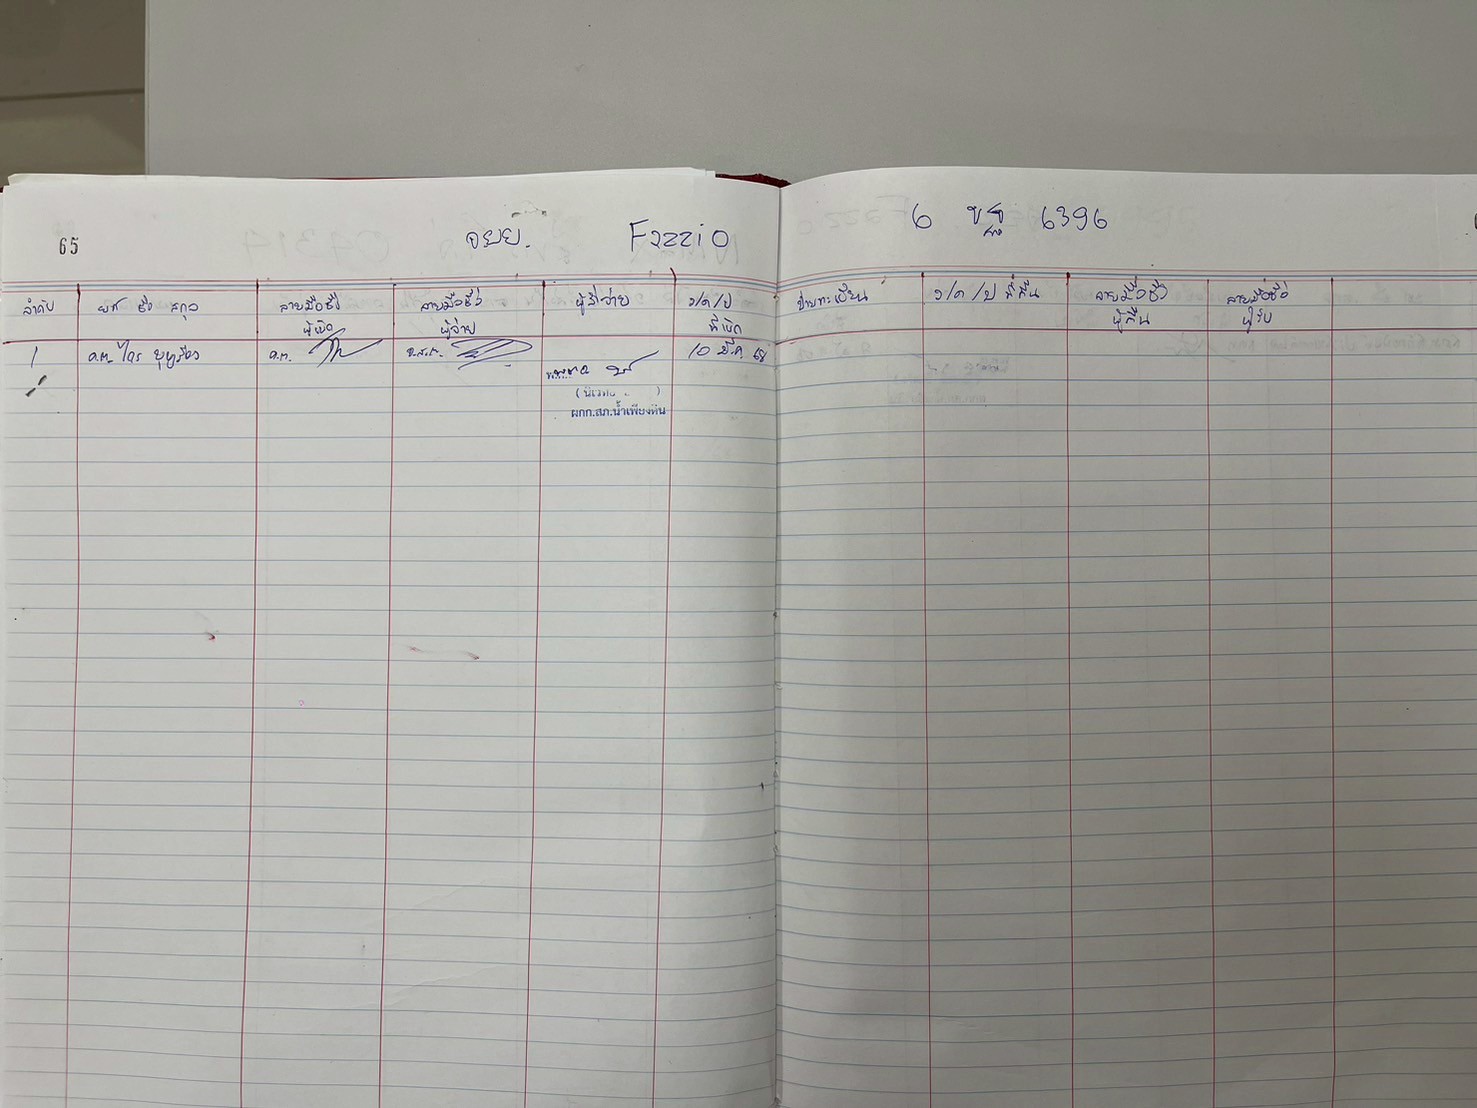 65
จยย. Fazzio 6 ขฐ 6396
ลำดับ ยศ ชื่อ สกุล ลายมือชื่อ ลายมือชื่อ ผู้สั่งจ่าย ว/ด/ป ฝ่ายทะเบียน ว/ด/ป ที่คืน ลายมือชื่อ ลายมือชื่อ
ผู้เบิก ผู้จ่าย ที่เบิก ผู้คืน ผู้รับ
1 ด.ต. ไกร ด.ต. 10 มี.ค. 68
ผกก.สภ.น้ำเพียงดิน